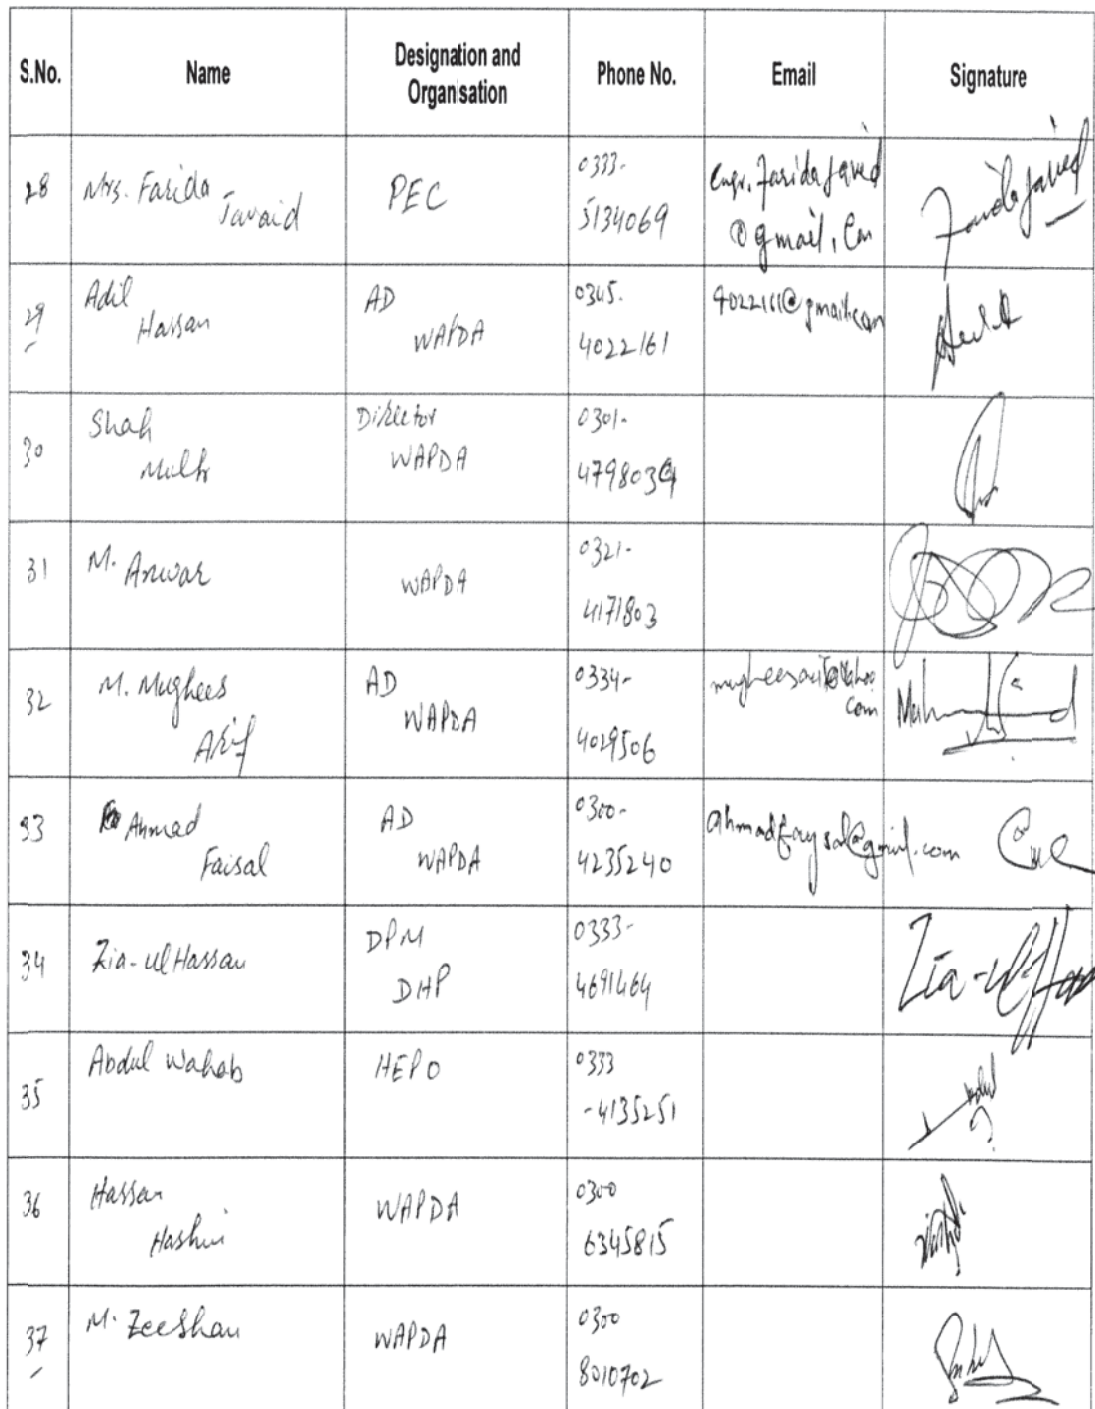 S.No. Name Designation and Organisation Phone No. Email Signature
28 Mrs. Farida Javaid PEC 0333- 5134069 engr.faridajaved @gmail.com Farida Javed
29 Adil Hassan AD WAPDA 0345. 4022161 4022161@gmail.com
30 Shah Director WAPDA 0301- 4798039
31 M. Anwar WAPDA 0321- 4171803
32 M. Mughees Arif AD WAPDA 0334- 4029506
33 Ahmad Faisal AD WAPDA 0300- 4235240 ahmadfaysal@gmail.com
34 Zia-ul Hassan DPM DHP 0333- 4691464 Zia-ul-Hassan
35 Abdul Wahab HEPO 0333 -4135251
36 Hassan Hashmi WAPDA 0300 6345815
37 M. Zeeshan WAPDA 0300 8010702